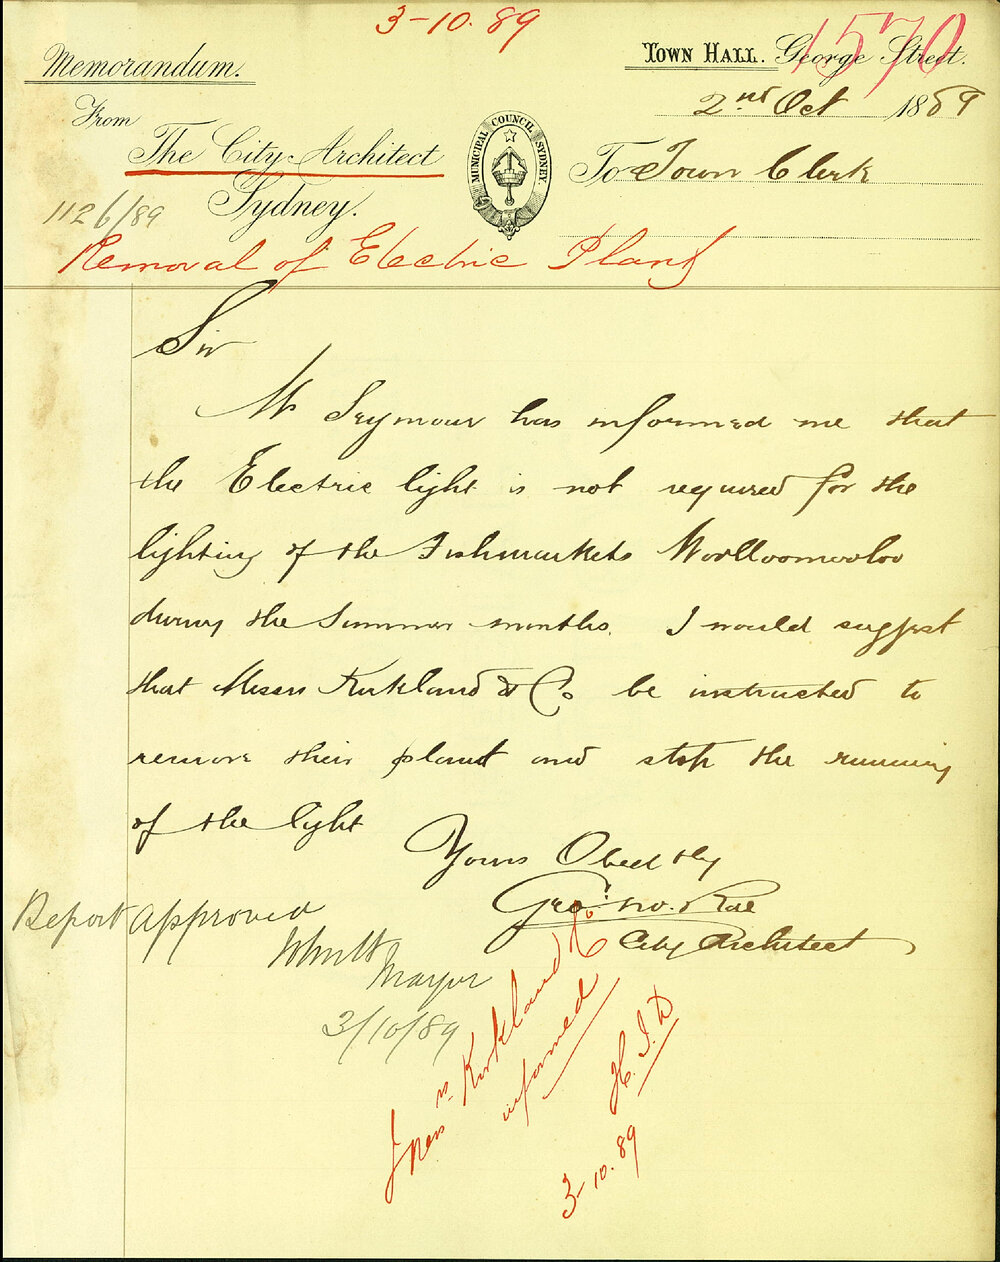 3-10.89
1570
Memorandum.
TOWN HALL. George Street.
2nd Oct 1889
From
The City Architect
Sydney.
MUNICIPAL COUNCIL SYDNEY.
To Town Clerk
1126/89
Removal of Electric Plant
Sir
Mr Seymour has informed me that
the Electric light is not required for the
lighting of the Fishmarkets Woolloomooloo
during the Summer months. I would suggest
that Messrs Kirkland & Co be instructed to
remove their plant and stop the running
of the light
Yours Obedtly
Geo: Mc.Rae
City Architect
Report approved
Mayor
3/10/89
Messrs. Kirkland & Co
informed
H.I.D
3-10.89